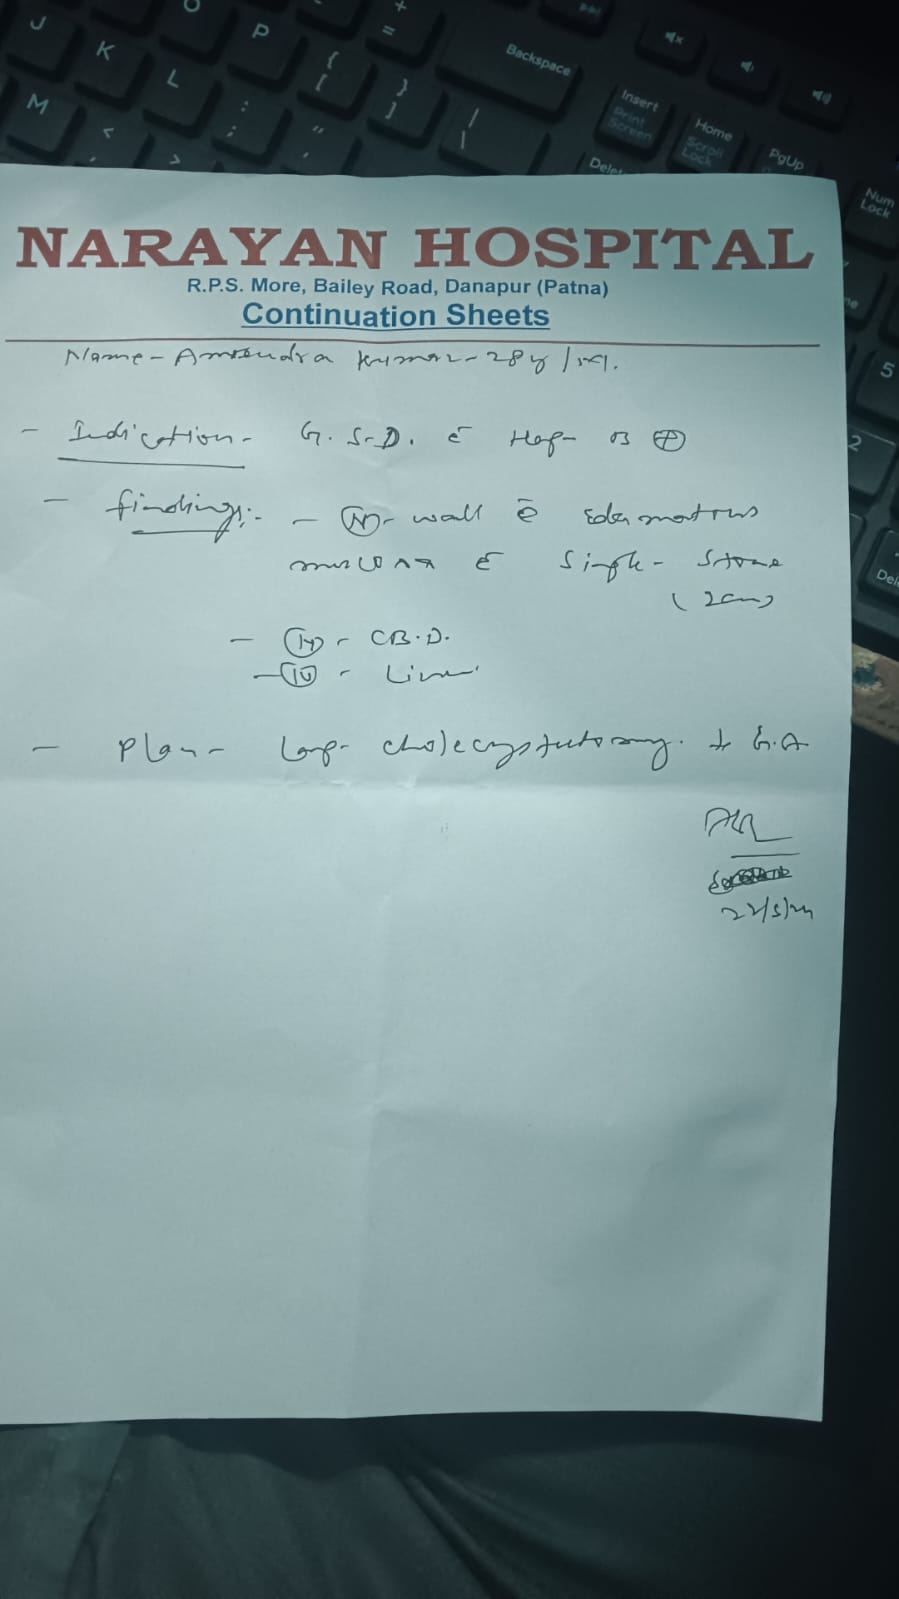 J
K
L
O
P
{
[
}
]
+
=
|
\
Backspace
Insert
Print
Screen
Home
Scroll
Lock
PgUp
Num
Lock
M
<
,
>
:
;
"
'
5
2
NARAYAN HOSPITAL
R.P.S. More, Bailey Road, Danapur (Patna)
Continuation Sheets
Name - Kumar - 28y / M.
- Indication - G.S.D. c̄ Hep- B ⊕
- findings:- - (N) - wall c̄ Edematous
mucosa c̄ Single - Stone
(2cm)
- (N) - C.B.D.
- (N) - Liver
- Plan - Lap- cholecystectomy. + G.A